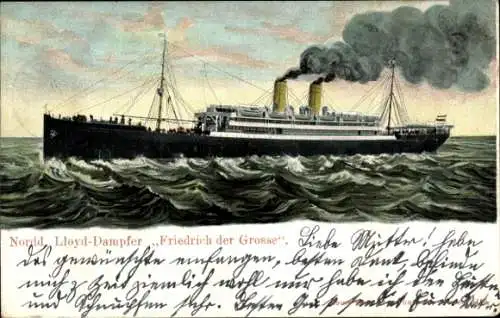 Nordd. Lloyd-Dampfer „Friedrich der Grosse“.
Liebe Mutter! habe
das gewünschte empfangen, besten Dank, befinde
mich zur Zeit ziemlich wohl nur habe ich den Husten
und Schnupfen sehr. Besten Gruß sendet